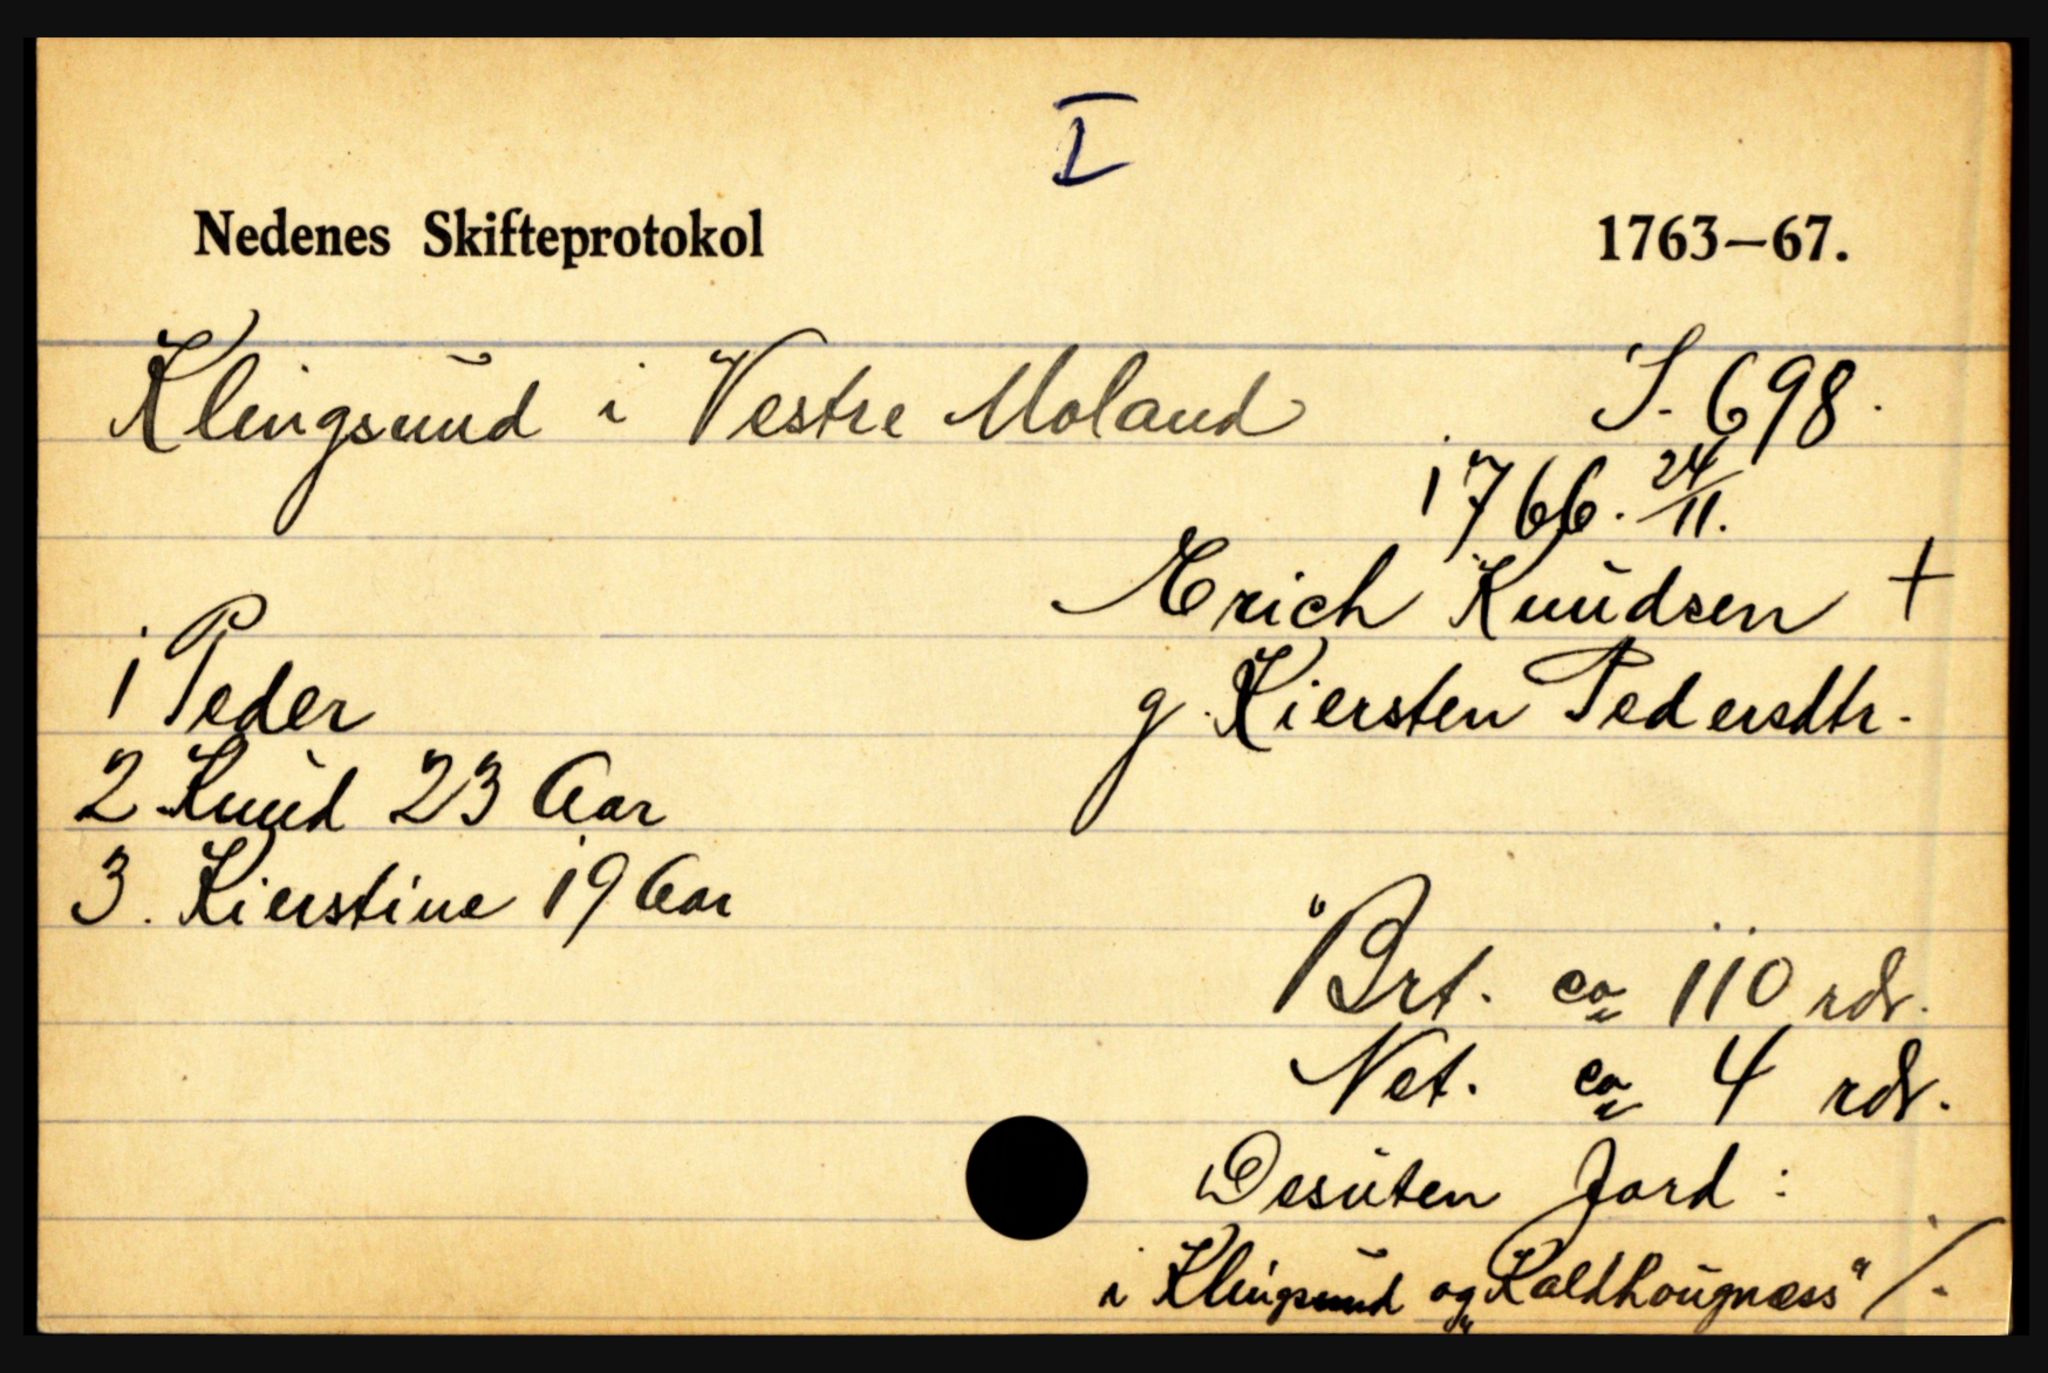 I
Nedenes Skifteprotokol 1763–67.
Klingsund i Vestre Moland S. 698.
1766. 24/11.
Erich Knudsen +
g. Kiersten Pedersdtr.
1 Peder
2 Knud 23 Aar
3. Kierstine 19 Aar
Brt. ca 110 rdr.
Net. ca 4 rdr.
Desuten Jord :
i Klingsund og „Kaldhougnæss“ ./.